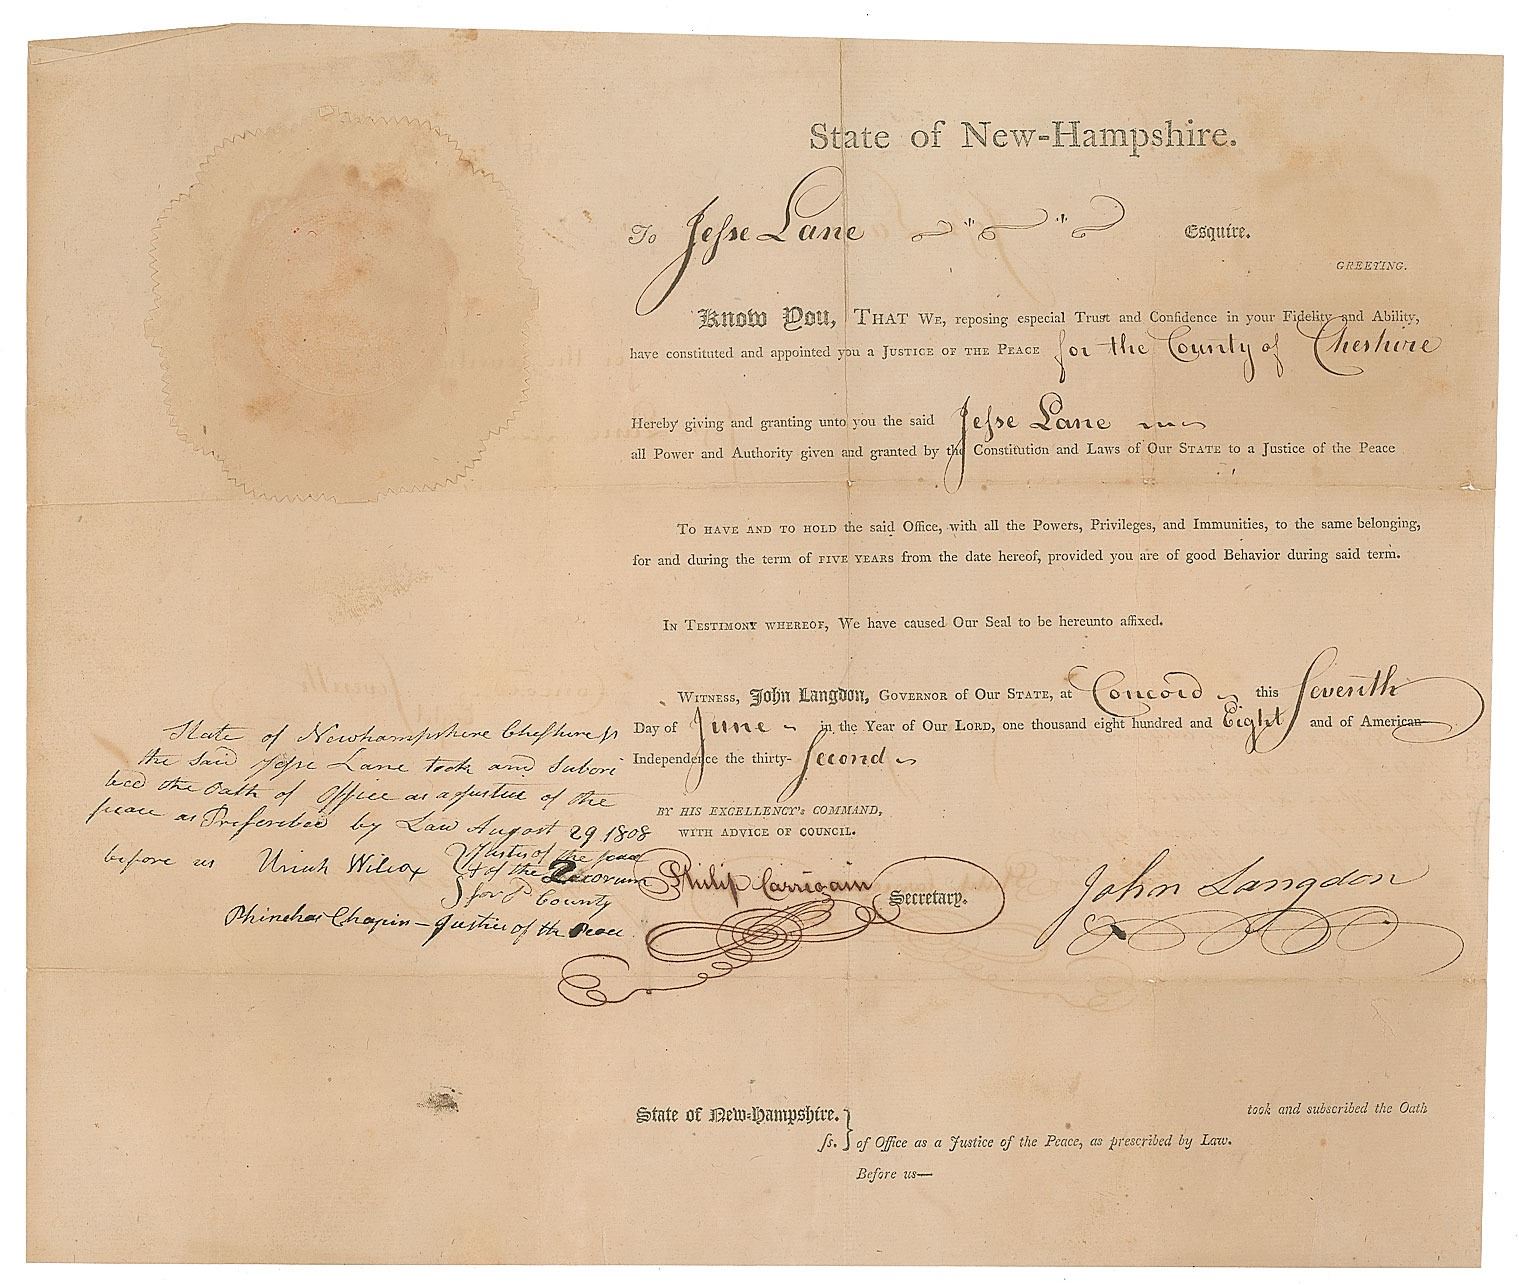 State of New-Hampshire.
To Jesse Lane Esquire.
GREETING.
Know You, THAT WE, reposing especial Trust and Confidence in your Fidelity and Ability,
have constituted and appointed you a JUSTICE OF THE PEACE for the County of Cheshire
Hereby giving and granting unto you the said Jesse Lane
all Power and Authority given and granted by the Constitution and Laws of Our STATE to a Justice of the Peace
TO HAVE AND TO HOLD the said Office, with all the Powers, Privileges, and Immunities, to the same belonging,
for and during the term of FIVE YEARS from the date hereof, provided you are of good Behavior during said term.
IN TESTIMONY WHEREOF, We have caused Our Seal to be hereunto affixed.
WITNESS, John Langdon, GOVERNOR OF OUR STATE, at Concord this Seventh
Day of June in the Year of Our LORD, one thousand eight hundred and Eight and of American
Independence the thirty-Second
BY HIS EXCELLENCY's COMMAND,
WITH ADVICE OF COUNCIL.
Philip Carrigain Secretary.
John Langdon
State of Newhampshire Cheshire ss
the said Jesse Lane took and Subcri
bed the Oath of Office as a Justice of the
peace as Prescribed by Law August 29 1808
before us Uriah Wilcox Justis of the peace
& of the Quorum
for sd County
Phinehas Chapin - Justice of the Peace
State of New-Hampshire. } took and subscribed the Oath
ss. } of Office as a Justice of the Peace, as prescribed by Law.
Before us—